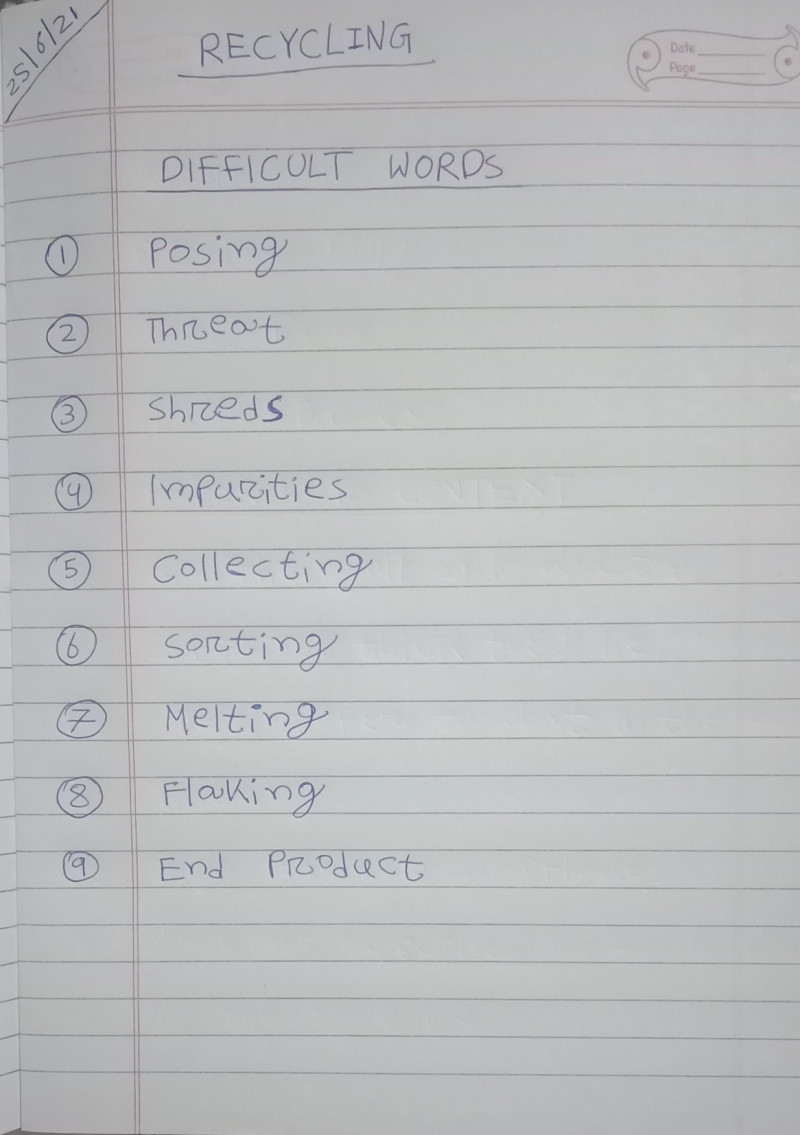 25/6/21
RECYCLING
Date
Page
DIFFICULT WORDS
1 Posing
2 Threat
3 Shreds
4 Impurities
5 Collecting
6 Sorting
7 Melting
8 Flaking
9 End Product